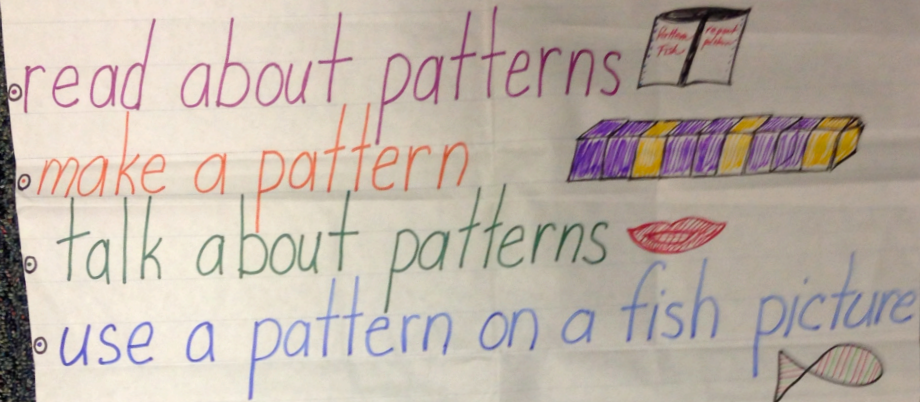 read about patterns
make a pattern
talk about patterns
use a pattern on a fish picture